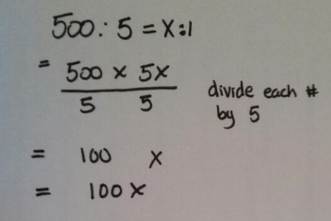 500 : 5 = x : 1
= 500 x 5x
5 5
divide each #
by 5
= 100 x
= 100 x